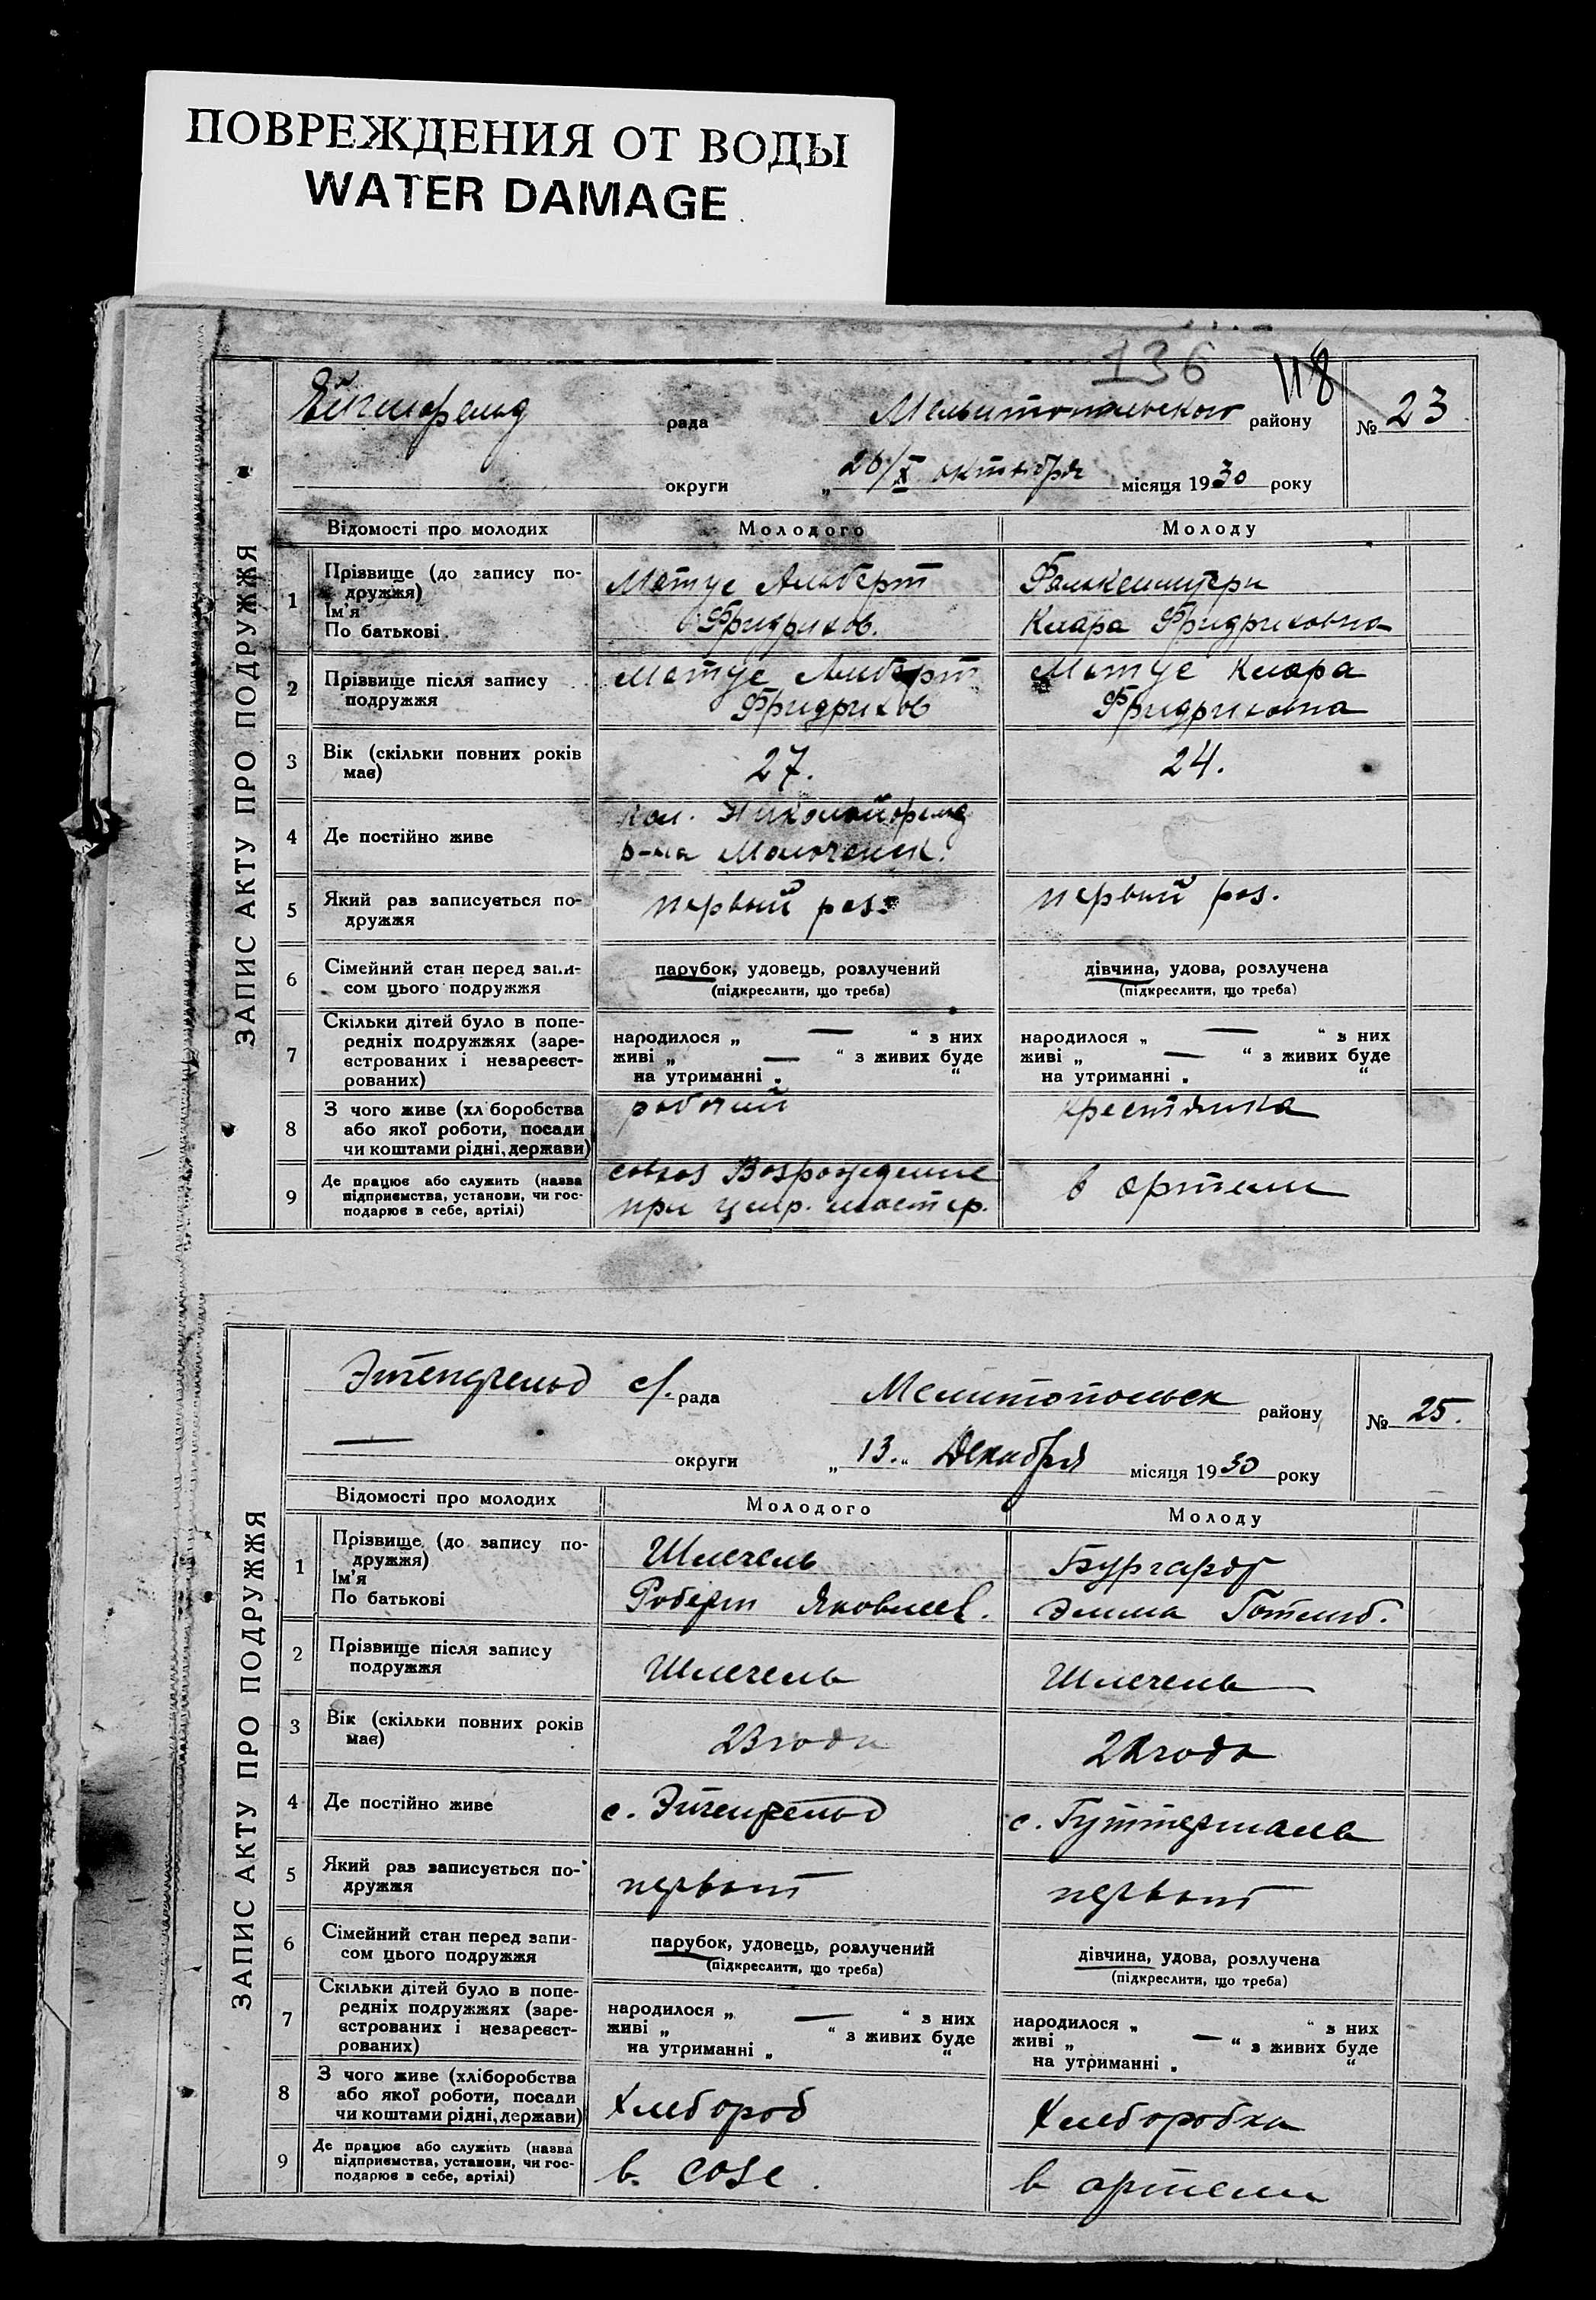 ПОВРЕЖДЕНИЯ ОТ ВОДЫ
WATER DAMAGE
136 118
рада Мелитопольского району № 23
округи „ 26/X октября місяця 1930 року
ЗАПИС АКТУ ПРО ПОДРУЖЖЯ
Відомості про молодих Молодого Молоду
1 Прізвище (до запису по-
дружжя)
Ім'я
По батькові
Матус Альберт
Фридрихов.
Фалькенштерн
Клара Фридриховна
2 Прізвище після запису
подружжя
Матус Альберт
Фридрихов
Матус Клара
Фридриховна
3 Вік (скільки повних років
має)
27.
24.
4 Де постійно живе
кол. Николайфельд
р-на Молоченск.
5 Який раз записується по-
дружжя
первый раз.
первый раз.
6 Сімейний стан перед запи-
сом цього подружжя
парубок, удовець, розлучений
(підкреслити, що треба)
дівчина, удова, розлучена
(підкреслити, що треба)
7 Скільки дітей було в попе-
редніх подружжях (заре-
єстрованих і незареєст-
рованих)
народилося „ — “ з них
живі „ — “ з живих буде
на утриманні „ “
народилося „ — “ з них
живі „ — “ з живих буде
на утриманні „ “
8 З чого живе (хліборобства
або якої роботи, посади
чи коштами рідні, держави)
рабочий
крестянка
9 Де працює або служить (назва
підприємства, установи, чи гос-
подарює в себе, артілі)
совхоз Возрождение
при мастер.
в артели
с/. рада Мелитопольск району № 25.
— округи „ 13 “ Декабря місяця 1930 року
ЗАПИС АКТУ ПРО ПОДРУЖЖЯ
Відомості про молодих Молодого Молоду
1 Прізвище (до запису по-
дружжя)
Ім'я
По батькові
Шлегель
Роберт Яковлев.
Бургардт
Эмма Готлиб.
2 Прізвище після запису
подружжя
Шлегель
Шлегель
3 Вік (скільки повних років
має)
23 года
22 года
4 Де постійно живе
с. Эйгенфельд
с. Гуттерталь
5 Який раз записується по-
дружжя
первый
первый
6 Сімейний стан перед запи-
сом цього подружжя
парубок, удовець, розлучений
(підкреслити, що треба)
дівчина, удова, розлучена
(підкреслити, що треба)
7 Скільки дітей було в попе-
редніх подружжях (заре-
єстрованих і незареєст-
рованих)
народилося „ — “ з них
живі „ “ з живих буде
на утриманні „ “
народилося „ “ з них
живі „ — “ з живих буде
на утриманні „ “
8 З чого живе (хліборобства
або якої роботи, посади
чи коштами рідні, держави)
Хлебороб
Хлеборобка
9 Де працює або служить (назва
підприємства, установи, чи гос-
подарює в себе, артілі)
в созе.
в артели